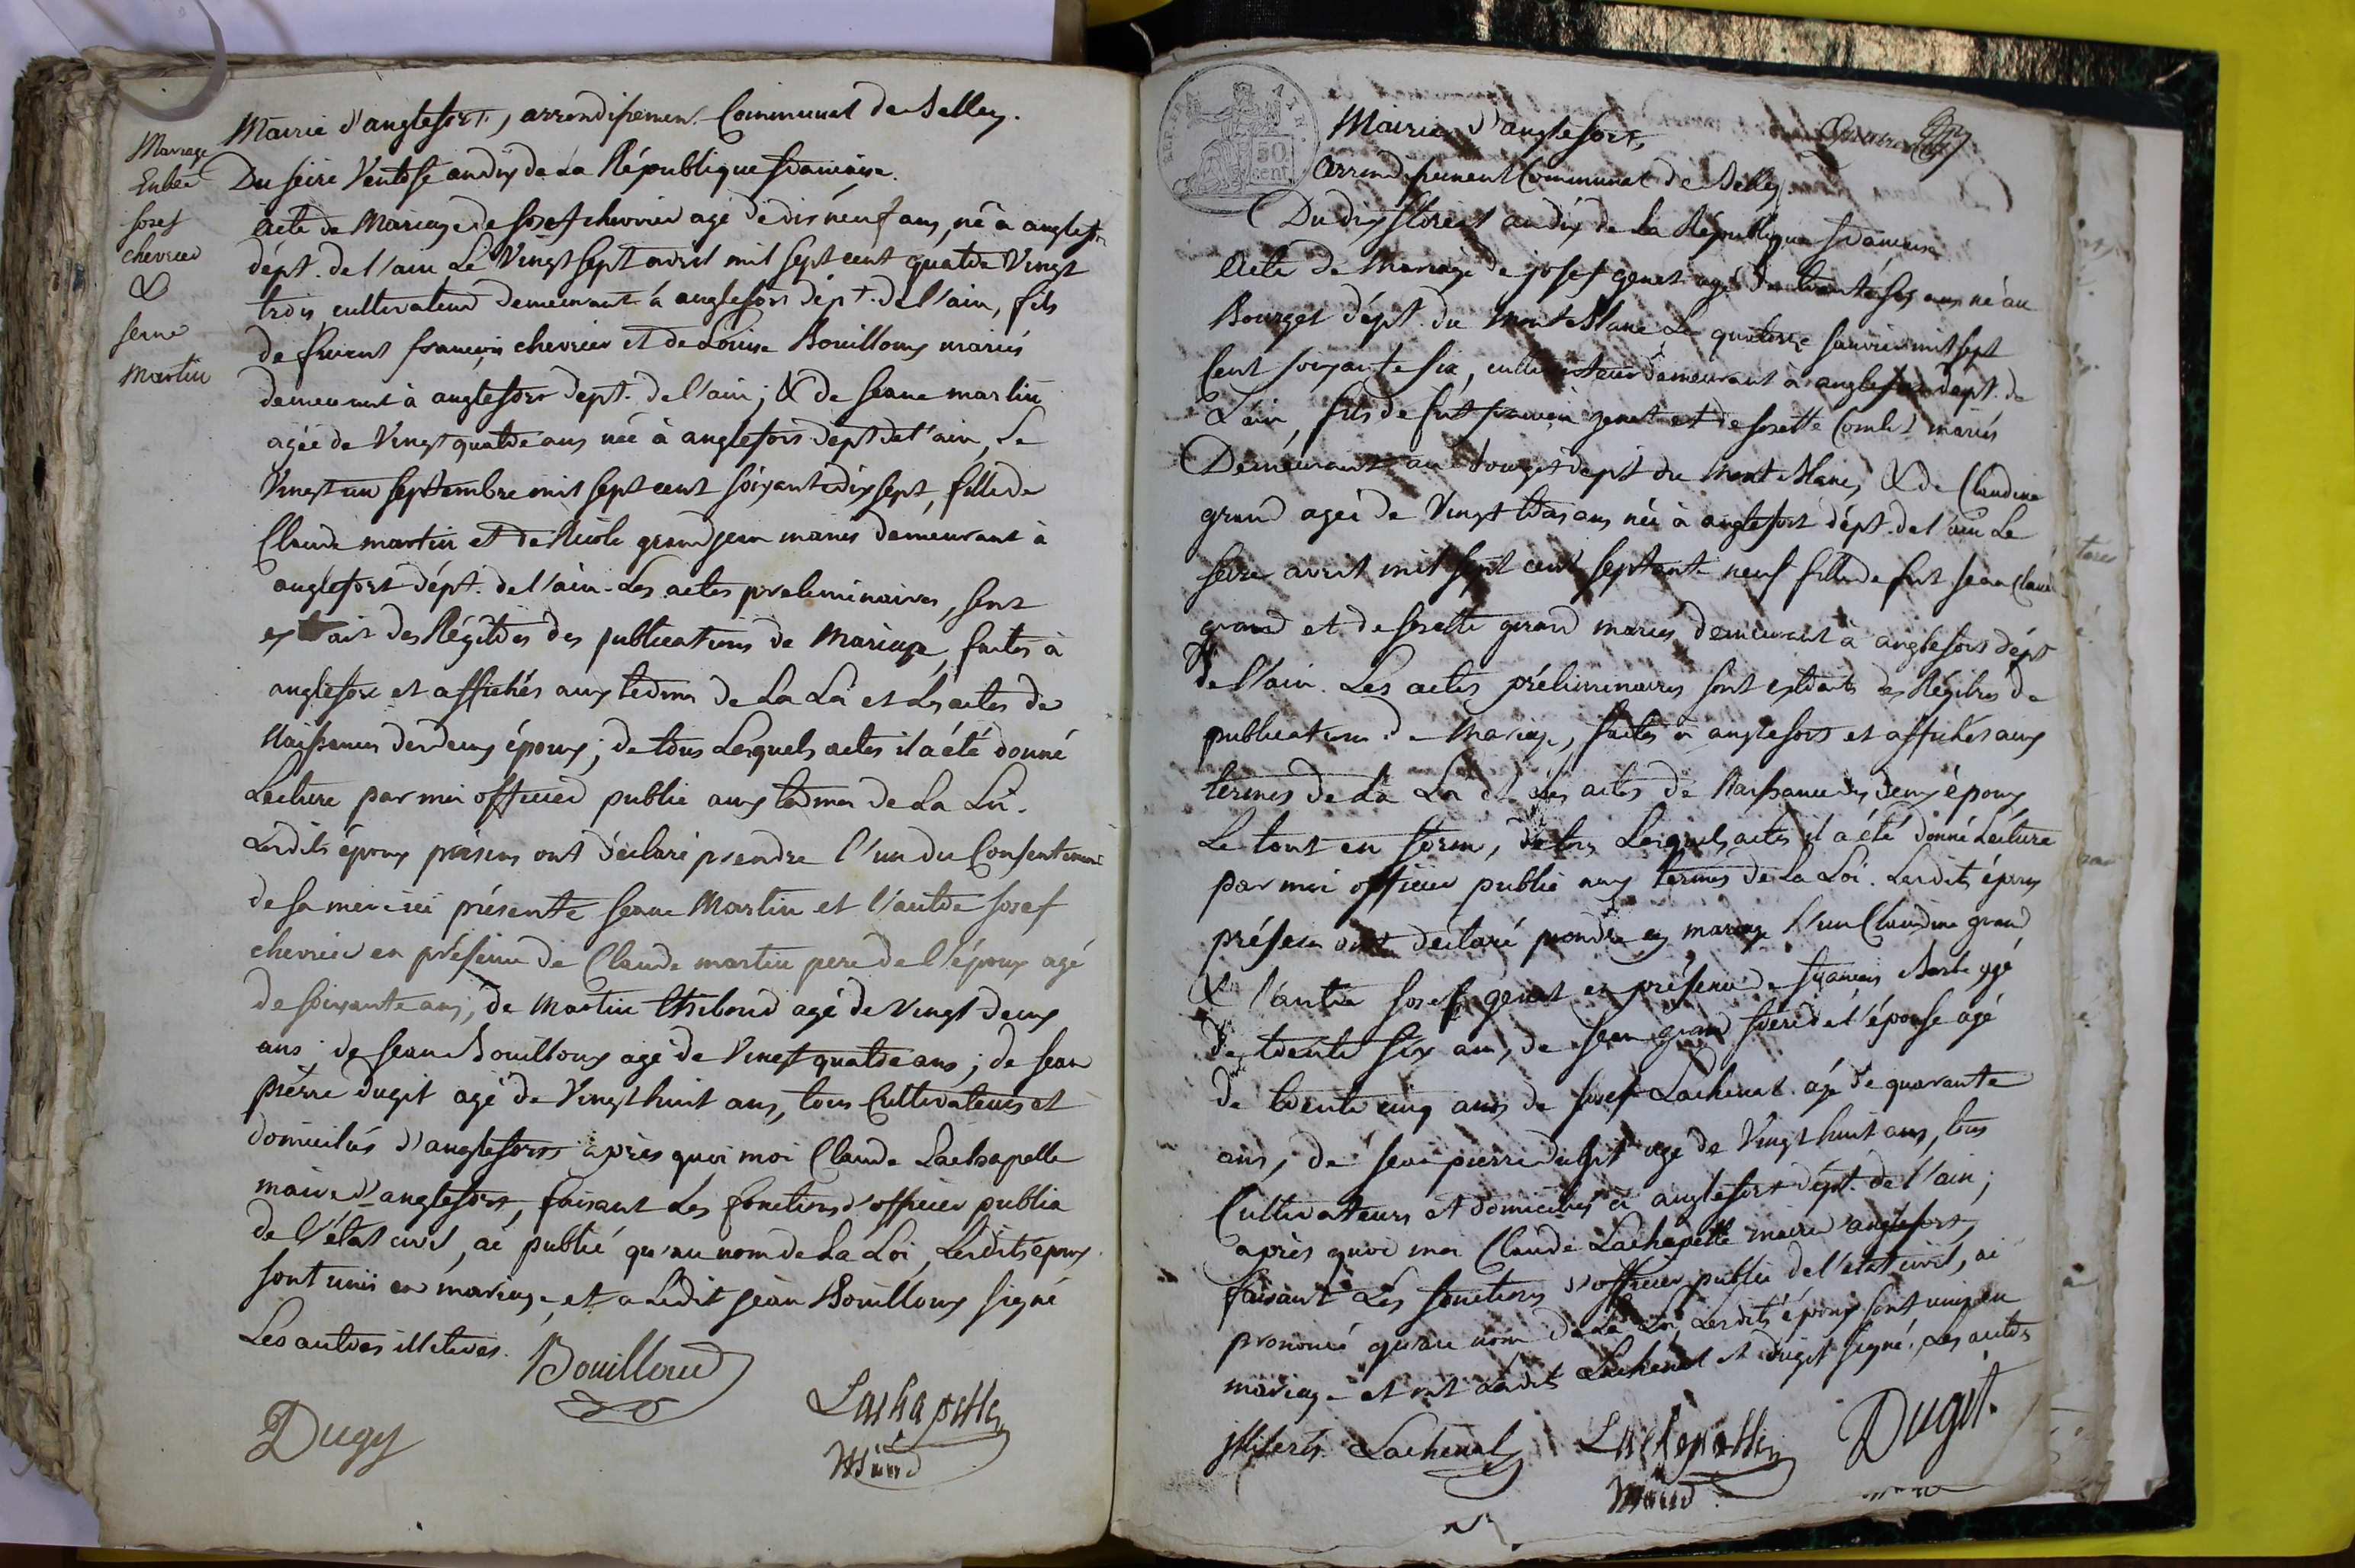 Mariage
Entre
josef
chevrier
&
jeane
Martin
Mairie d'anglefort, arrondissement Communal de Belley.
Du seize Ventose an dix de La République française.
Acte de Mariage de josef chevrier agé de dix neuf ans, né à anglefort
dépt. de l'ain Le Vingt sept avril mil sept cent quatre Vingt
trois cultivateur demeurant à anglefort dépt. de l'ain, fils
de françois chevrier et de Louise Bouilloux mariés
demeurant à anglefort dept. de l'ain; & de jeane martin
agée de Vingt quatre ans née à anglefort dept de l'ain, Le
Vingt un septembre mil sept cent soixante dix sept, fille de
Claude martin et de Nicole grandjean mariés demeurant à
anglefort dépt. de l'ain. Les actes preliminaires, sont
extrait des Régitres des publications de Mariage, faites à
anglefort et affichés aux termes de La Loi et Les actes de
Naissances des deux époux; de tous Lesquels actes il a été donné
Lecture par moi officier public aux termes de La Loi.
Lesdits époux présens ont déclaré prendre l'un du Consentement
de sa mere ici présente jeane Martin et l'autre josef
chevrier en présence de Claude martin pere de l'épouse agé
de soixante ans; de Martin thiboud agé de Vingt deux
ans; de jean Bouilloux agé de Vingt quatre ans; de jean
pierre dugit agé de Vingt huit ans, tous Cultivateurs et
domiciliés d'anglefort après quoi moi Claude Lachapelle
maire d'anglefort, faisant Les fonctions d'officier public
de l'état civil, ai publié qu'au nom de La Loi, Lesdits époux
sont unis en mariage et a Ledit jean Bouilloux signé
Les autres illiteres. Bouilloud
Lachapelle
Dugy
Maire
REP. FRA.
50
cent.
Mairie d'anglefort,
Arrondissement Communal de Belley.
Du dix floreal an dix de La République française
Acte de Mariage de josef genet agé de trente six ans né au
Bourget dépt. du Mont Blanc Le quatorze janvier mil sept
Cent soixante six, cultivateur demeurant à anglefort dépt. de
L'ain, fils de fut françois genet et de josette Combet mariés
Demeurant au bourget dept du Mont Blanc, & de Claudine
grand agée de Vingt trois ans née à anglefort dépt. de l'ain Le
seize avril mil sept cent septante neuf fille de fut jean Claude
grand et de josette grand mariés demeurant à anglefort dépt
de l'ain. Les actes préliminaires sont extraits des Régitres de
publication de Mariage, faites à anglefort et affichés aux
termes de La Loi et Les actes de Naissance des deux époux
Le tout en forme, de tous Lesquels actes il a été donné Lecture
par moi officier public aux termes de La Loi. Lesdits époux
présens ont declaré prendre en mariage l'un Claudine grand
& l'autre josef genet en présence de françois agé
de trente six ans, de jean grand frere de l'épouse agé
de trente cinq ans de josef Lachenal agé de quarante
ans, de jean pierre dugit agé de Vingt huit ans, tous
Cultivateurs et domiciliés à anglefort dépt. de l'ain;
après quoi moi Claude Lachapelle maire d'anglefort,
faisant Les fonctions d'officier public de l'état civil, ai
prononcé qu'au nom de La Loi Lesdits époux sont unis en
mariage et ont Lesdits Lachenal et dugit signé. Les autres
illiterés. Lachenal Lachapelle Dugit.
Maire